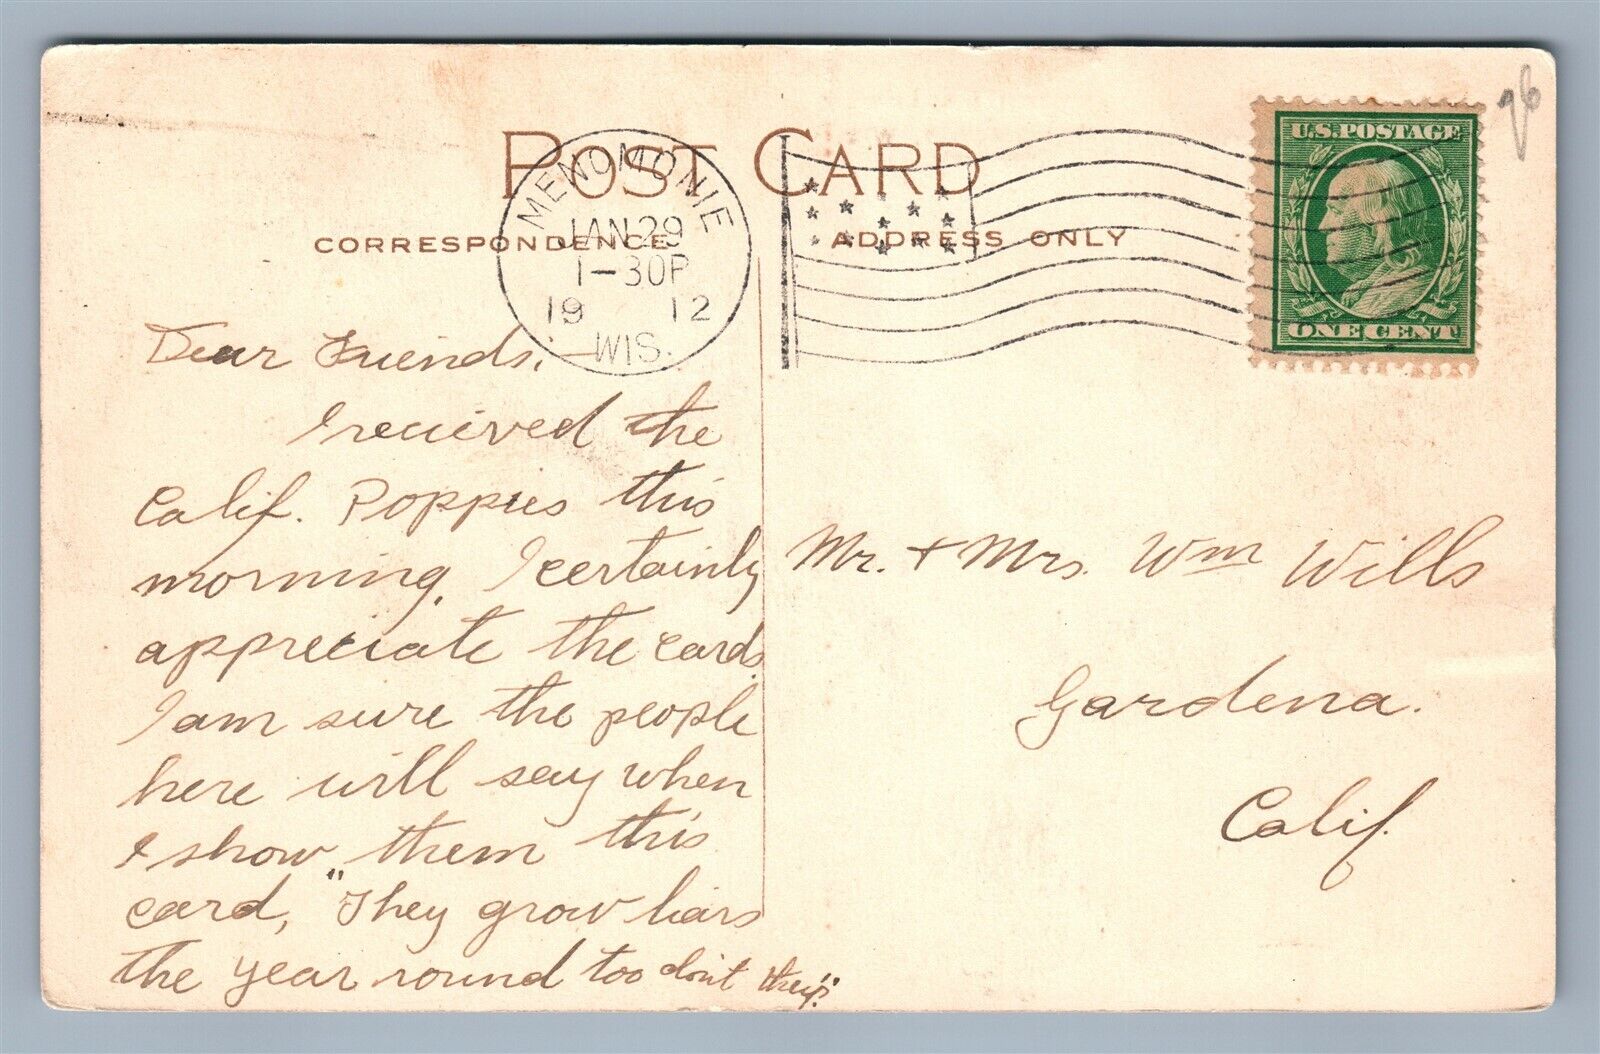 POST CARD
CORRESPONDENCE
ADDRESS ONLY
MENOMONIE
JAN 29
1-30P
19 12
WIS.
U.S. POSTAGE
ONE CENT
96
Dear Friends;—
I recieved the
Calif. Poppies this
morning. I certainly
appreciate the cards
I am sure the people
here will say when
I show them this
card, "They grow liars
the year round too don't they?"
Mr. + Mrs. Wm Wills
Gardena.
Calif.